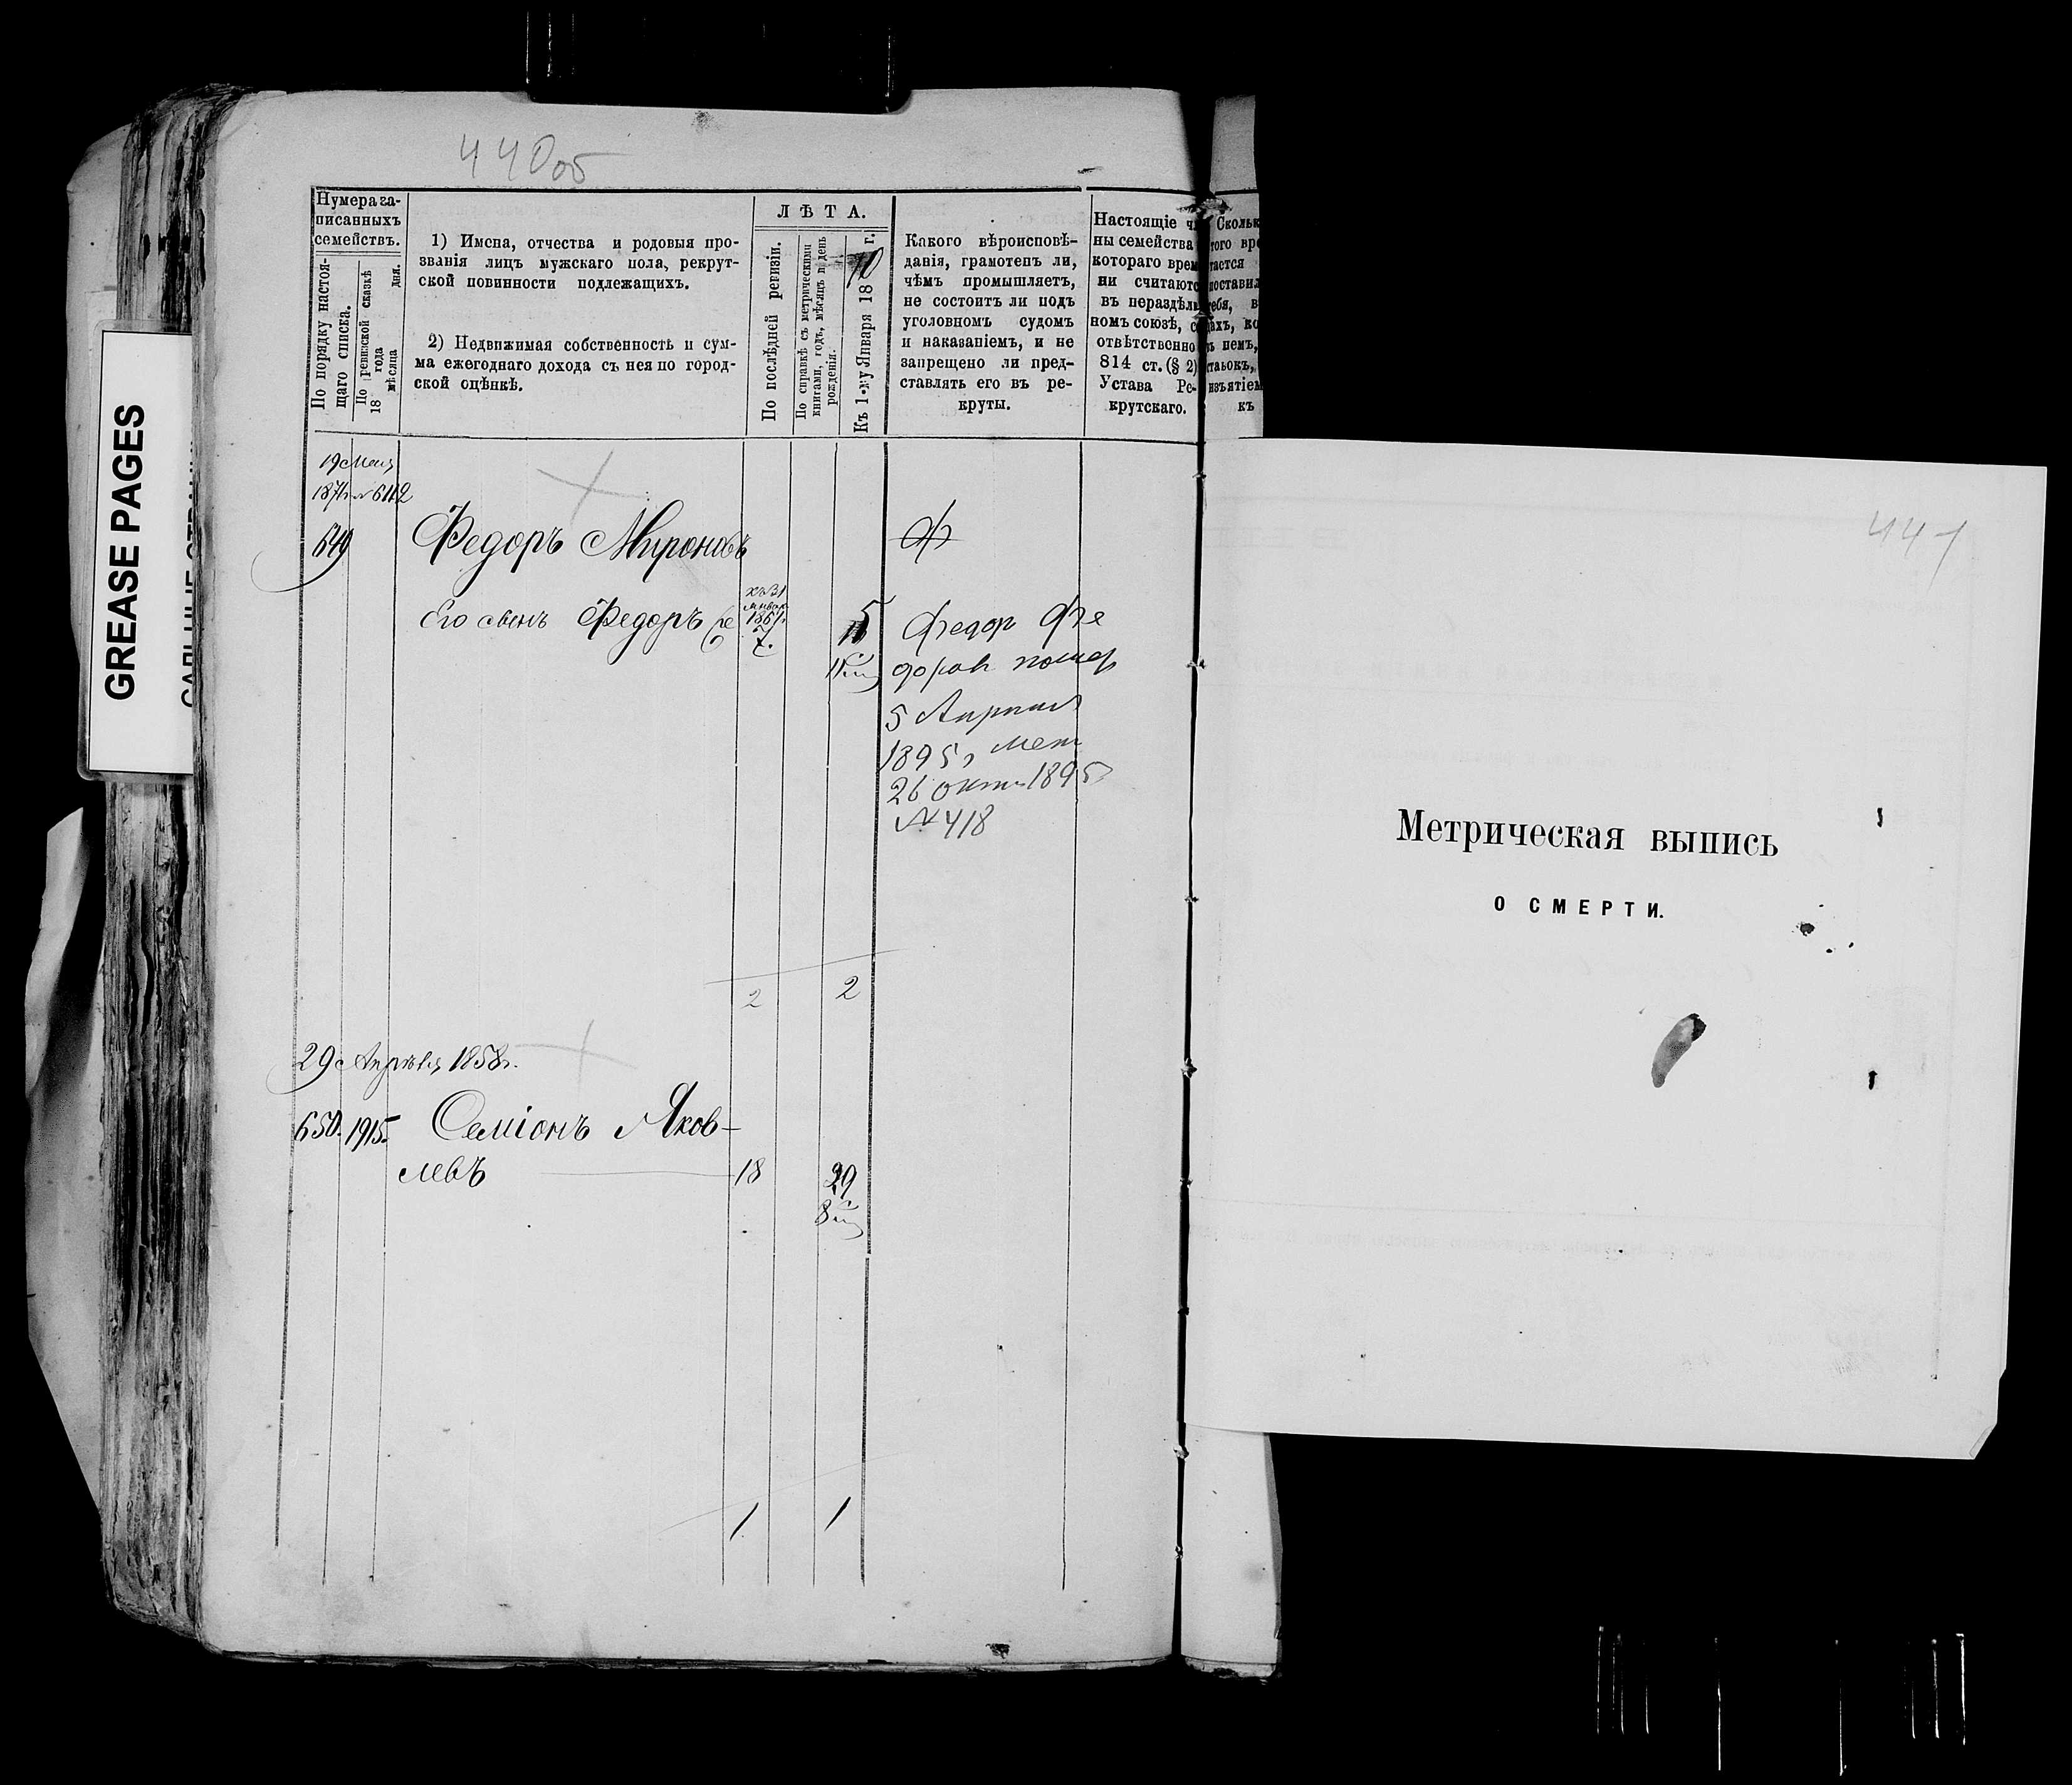 440об
Нумера за-
писанныхъ
семействъ.
По порядку настоя-
щаго списка.
По ревизской сказкѣ
18 года
мѣсяца дня.
1) Имена, отчества и родовыя про-
званія лицъ мужскаго пола, рекрут-
ской повинности подлежащихъ.
2) Недвижимая собственность и сум-
ма ежегоднаго дохода съ нея по город-
ской оцѣнкѣ.
ЛѢТА.
По послѣдней ревизіи.
По справкѣ съ метрическими
книгами, годъ, мѣсяцъ и день
рожденія.
Къ 1-му Января 1870 г.
Какого вѣроисповѣ-
данія, грамотенъ ли,
чѣмъ промышляетъ,
не состоитъ ли подъ
уголовномъ судомъ
и наказаніемъ, и не
запрещено ли пред-
ставлять его въ ре-
круты.
Настоящіе ч
ны семейства
котораго врем
ни считаютс
въ нераздѣль
номъ союзѣ, с
отвѣтственно
814 ст. (§ 2)
Устава Ре-
крутскаго.
Сколь
того вре
тается
поставил
себя, в
дахъ, ко
въ немъ,
ставокъ,
изъятіем
къ
19 Мая
1871 г № 6112
649 Федоръ Мироновъ Ф
Его сынъ Федоръ
7. 15
Федор Фе
доров помер
5 Апреля
1895 г мет
26 окт 1895 г
№ 418
2 2
29 Апрѣля 1858 г.
650. 1915. Семіонъ Яков-
левъ 18 29
8
1 1
GREASE PAGES
441
Метрическая выпись
О СМЕРТИ.